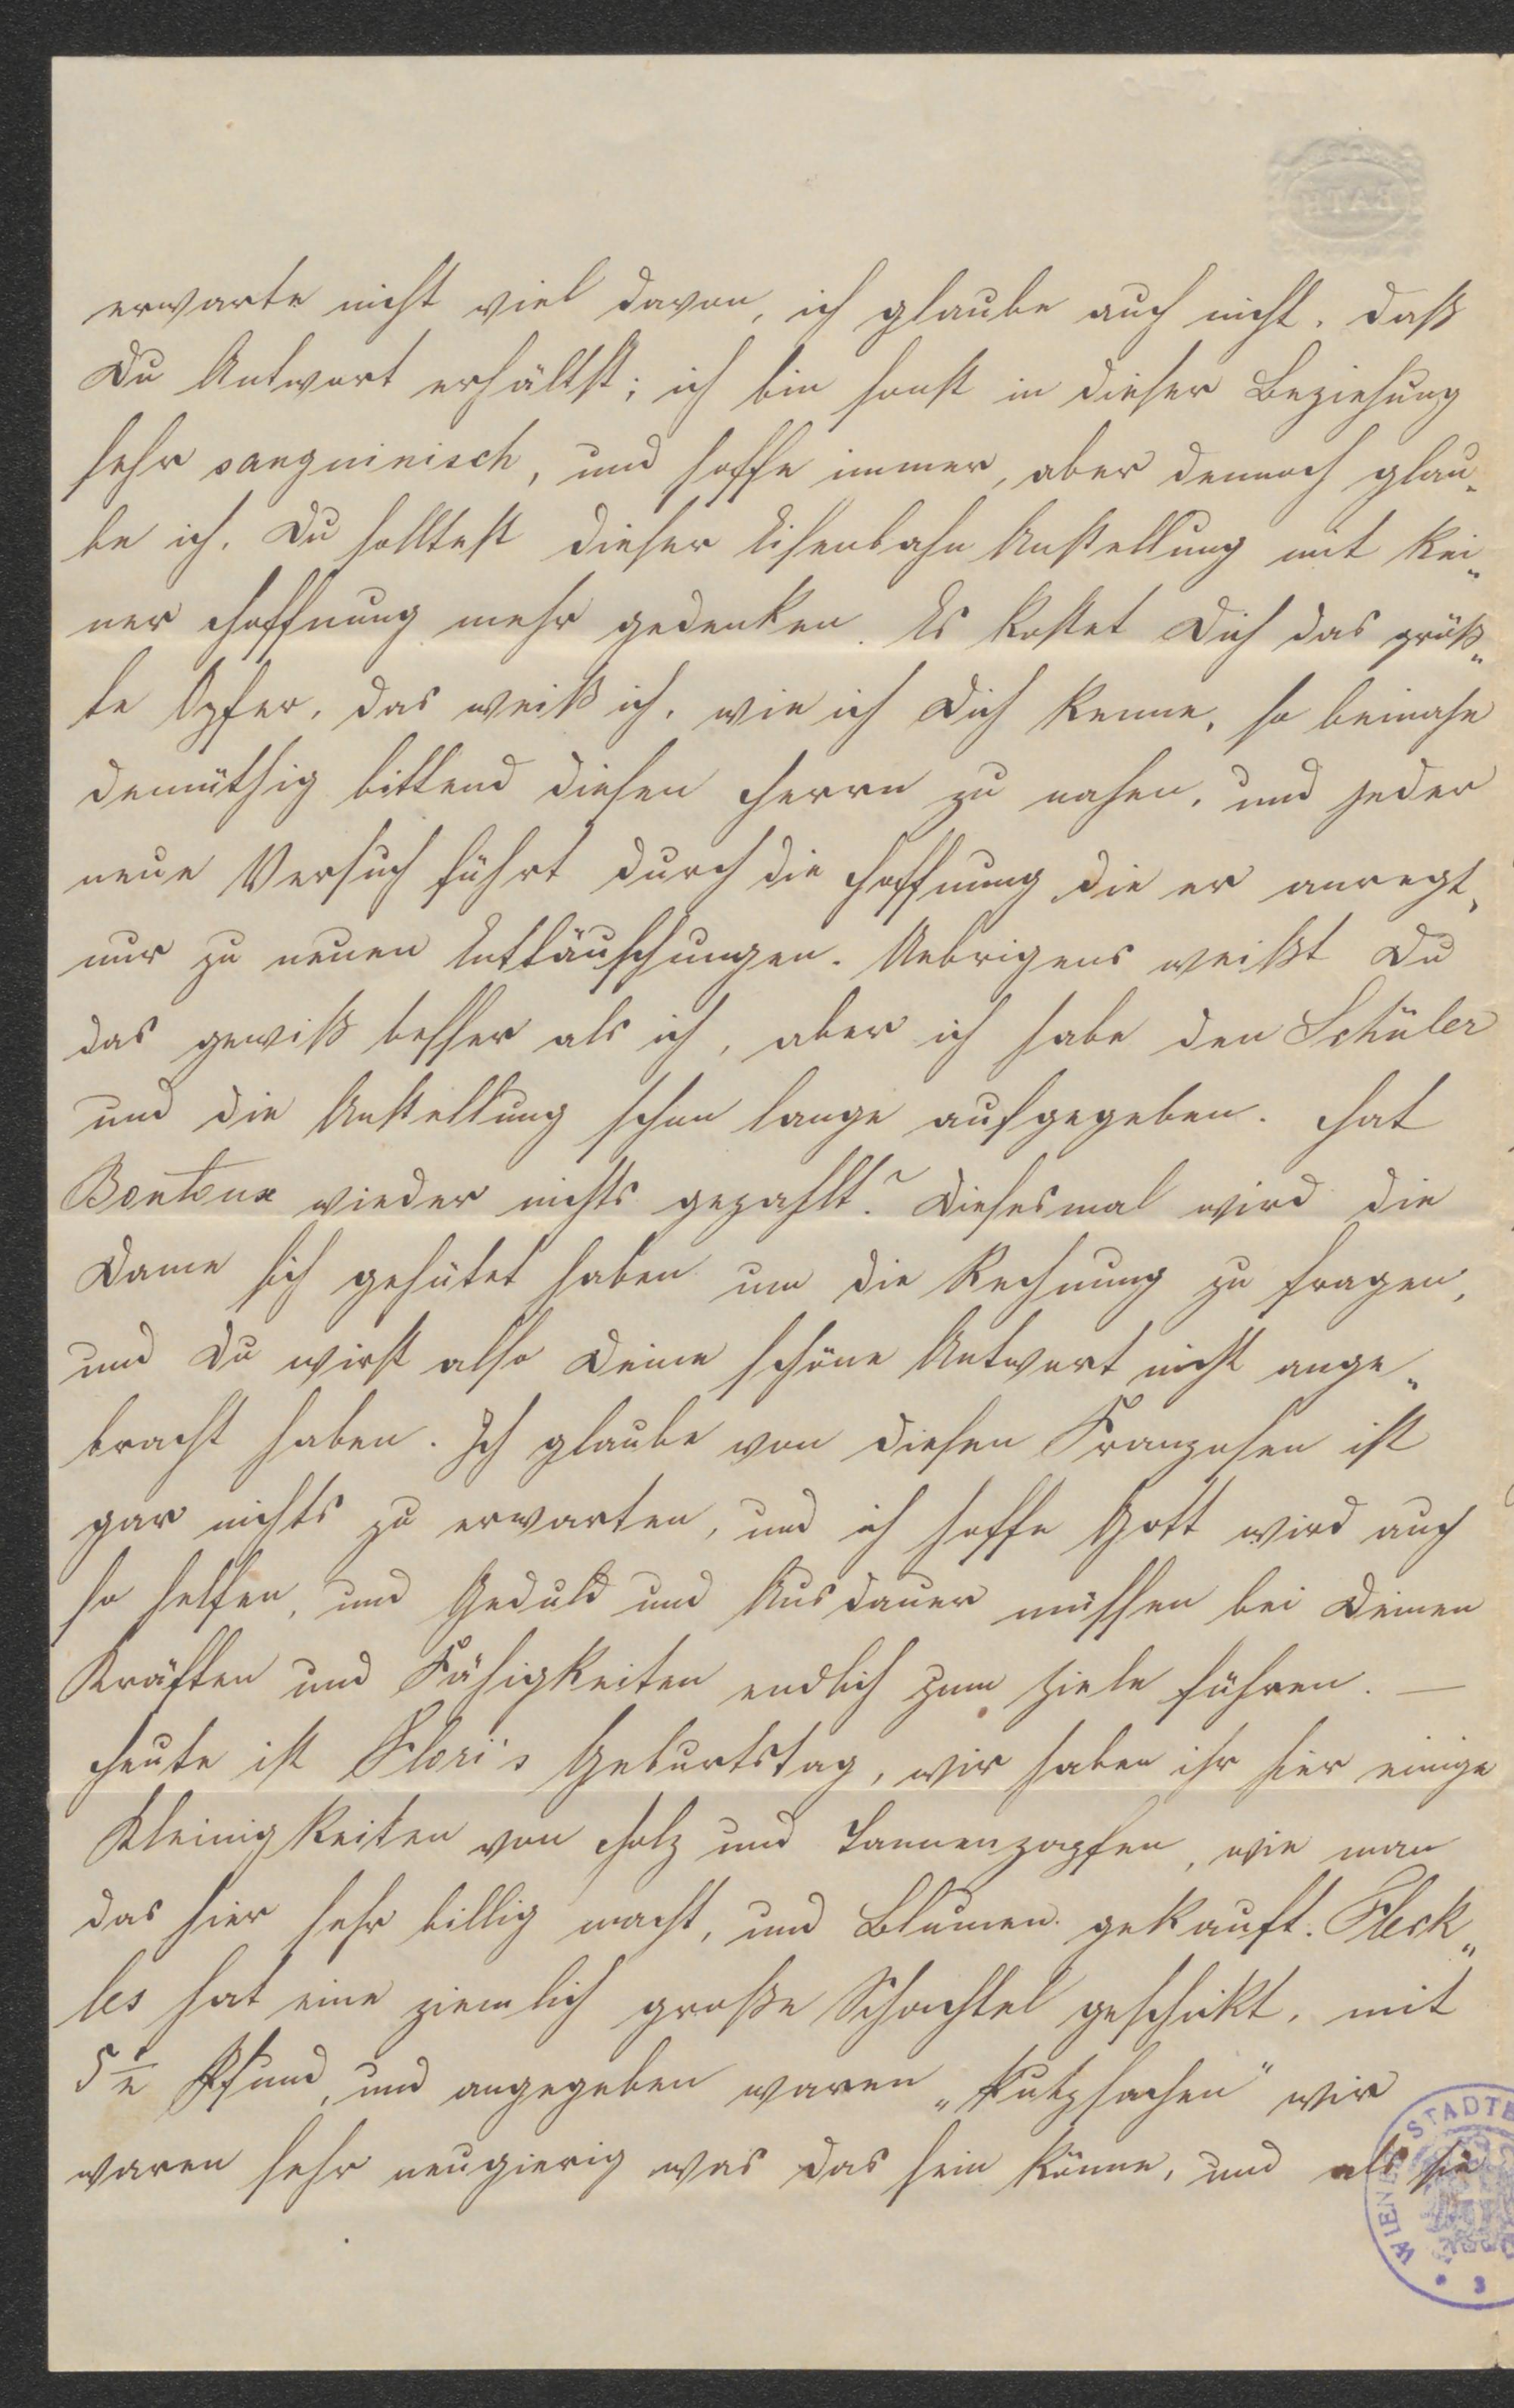 BATH
erwarte nicht viel davon, ich glaube auch nicht, daß
Du Antwort erhältst; ich bin sonst in dieser Beziehung
sehr sanguinisch, und hoffe immer, aber dennoch glau„
be ich, Du solltest dieser Eisenbahn Anstellung mit kei„
ner Hoffnung mehr gedenken. Es kostet Dich das größ„
te Opfer, das weiß ich, wie ich Dich kenne, so beinahe
demüthig bittend diesen Herrn zu nahen, und jeder
neue Versuch führt durch die Hoffnung die er anregt,
nur zu neuen Enttäuschungen. Uebrigens weißt Du
das gewiß besser als ich, aber ich habe den Schüler
und die Anstellung schon lange aufgegeben. Hat
Bontoux wieder nichts gezahlt? Diesesmal wird die
Dame sich gehütet haben um die Rechnung zu fragen,
und Du wirst also Deine schöne Antwort nicht ange„
bracht haben. Ich glaube von diesen Franzosen ist
gar nichts zu erwarten, und ich hoffe Gott wird auch
so helfen, und Geduld und Ausdauer müssen bei Deinen
Kräften und Fähigkeiten endlich zum Ziele führen. —
Heute ist Flori's Geburtstag, wir haben ihr hier einige
Kleinigkeiten von Holz und Tannenzapfen, wie man
das hier sehr billig macht, und Blumen gekauft. Fleck„
les hat eine ziemlich große Schachtel geschickt, mit
5½ Pfund, und angegeben waren „Putzsachen" wir
waren sehr neugierig was das sein könne, und als sie
WIENER STADTB